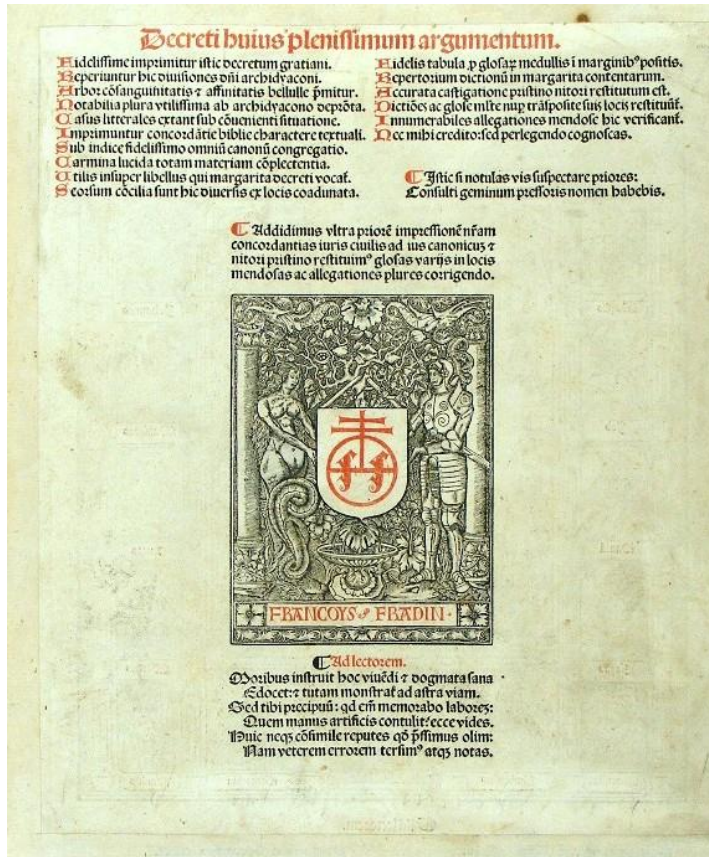 Decreti huius plenissimum argumentum.
Fidelissime imprimitur istic decretum gratiani.
Reperiuntur hic diuisiones dñi archidyaconi.
Arbor cõsanguinitatis ⁊ affinitatis bellulle p̃mitur.
Notabilia plura vtilissima ab archidyacono deprõta.
Casus litterales extant sub cõuenienti situatione.
Imprimuntur concordãtie biblie charactere textuali.
Sub indice fidelissimo omniũ canonũ congregatio.
Carmina lucida totam materiam cõplectentia.
Utilis insuper libellus qui margarita decreti vocat̃.
Seorsum cõcilia sunt hic diuersis ex locis coadunata.
Fidelis tabula ꝓ glosaꝝ medullis ĩ marginibꝰ positis.
Repertorium dictionũ in margarita contentarum.
Accurata castigatione pristino nitori restitutum est.
Dictiões ac glose mlte nuꝑ trãsposite suis locis restituũt̃.
Innumerabiles allegationes mendose hic verificant̃.
Nec mihi credito: sed perlegendo cognoscas.
¶ Istic si notulas vis suspectare priores:
Consulti geminum pressoris nomen habebis.
¶ Addidimus vltra priorẽ impressionẽ nr̃am
concordantias iuris ciuilis ad ius canonicuꝫ ⁊
nitori pristino restituimꝰ glosas varijs in locis
mendosas ac allegationes plures corrigendo.
FRANCOYS FRADIN
¶ Ad lectorem.
Moribus instruit hoc viuẽdi ⁊ dogmata sana
Edocet: ⁊ tutam monstrat ad astra viam.
Sed tibi precipuũ: qd em̃ memorabo laboreꝫ:
Quem manus artificis contulit: ecce vides.
Huic neqꝫ cõsimile reputes qõ p̃ssimus olim:
Nam veterem errorem tersimꝰ atqꝫ notas.